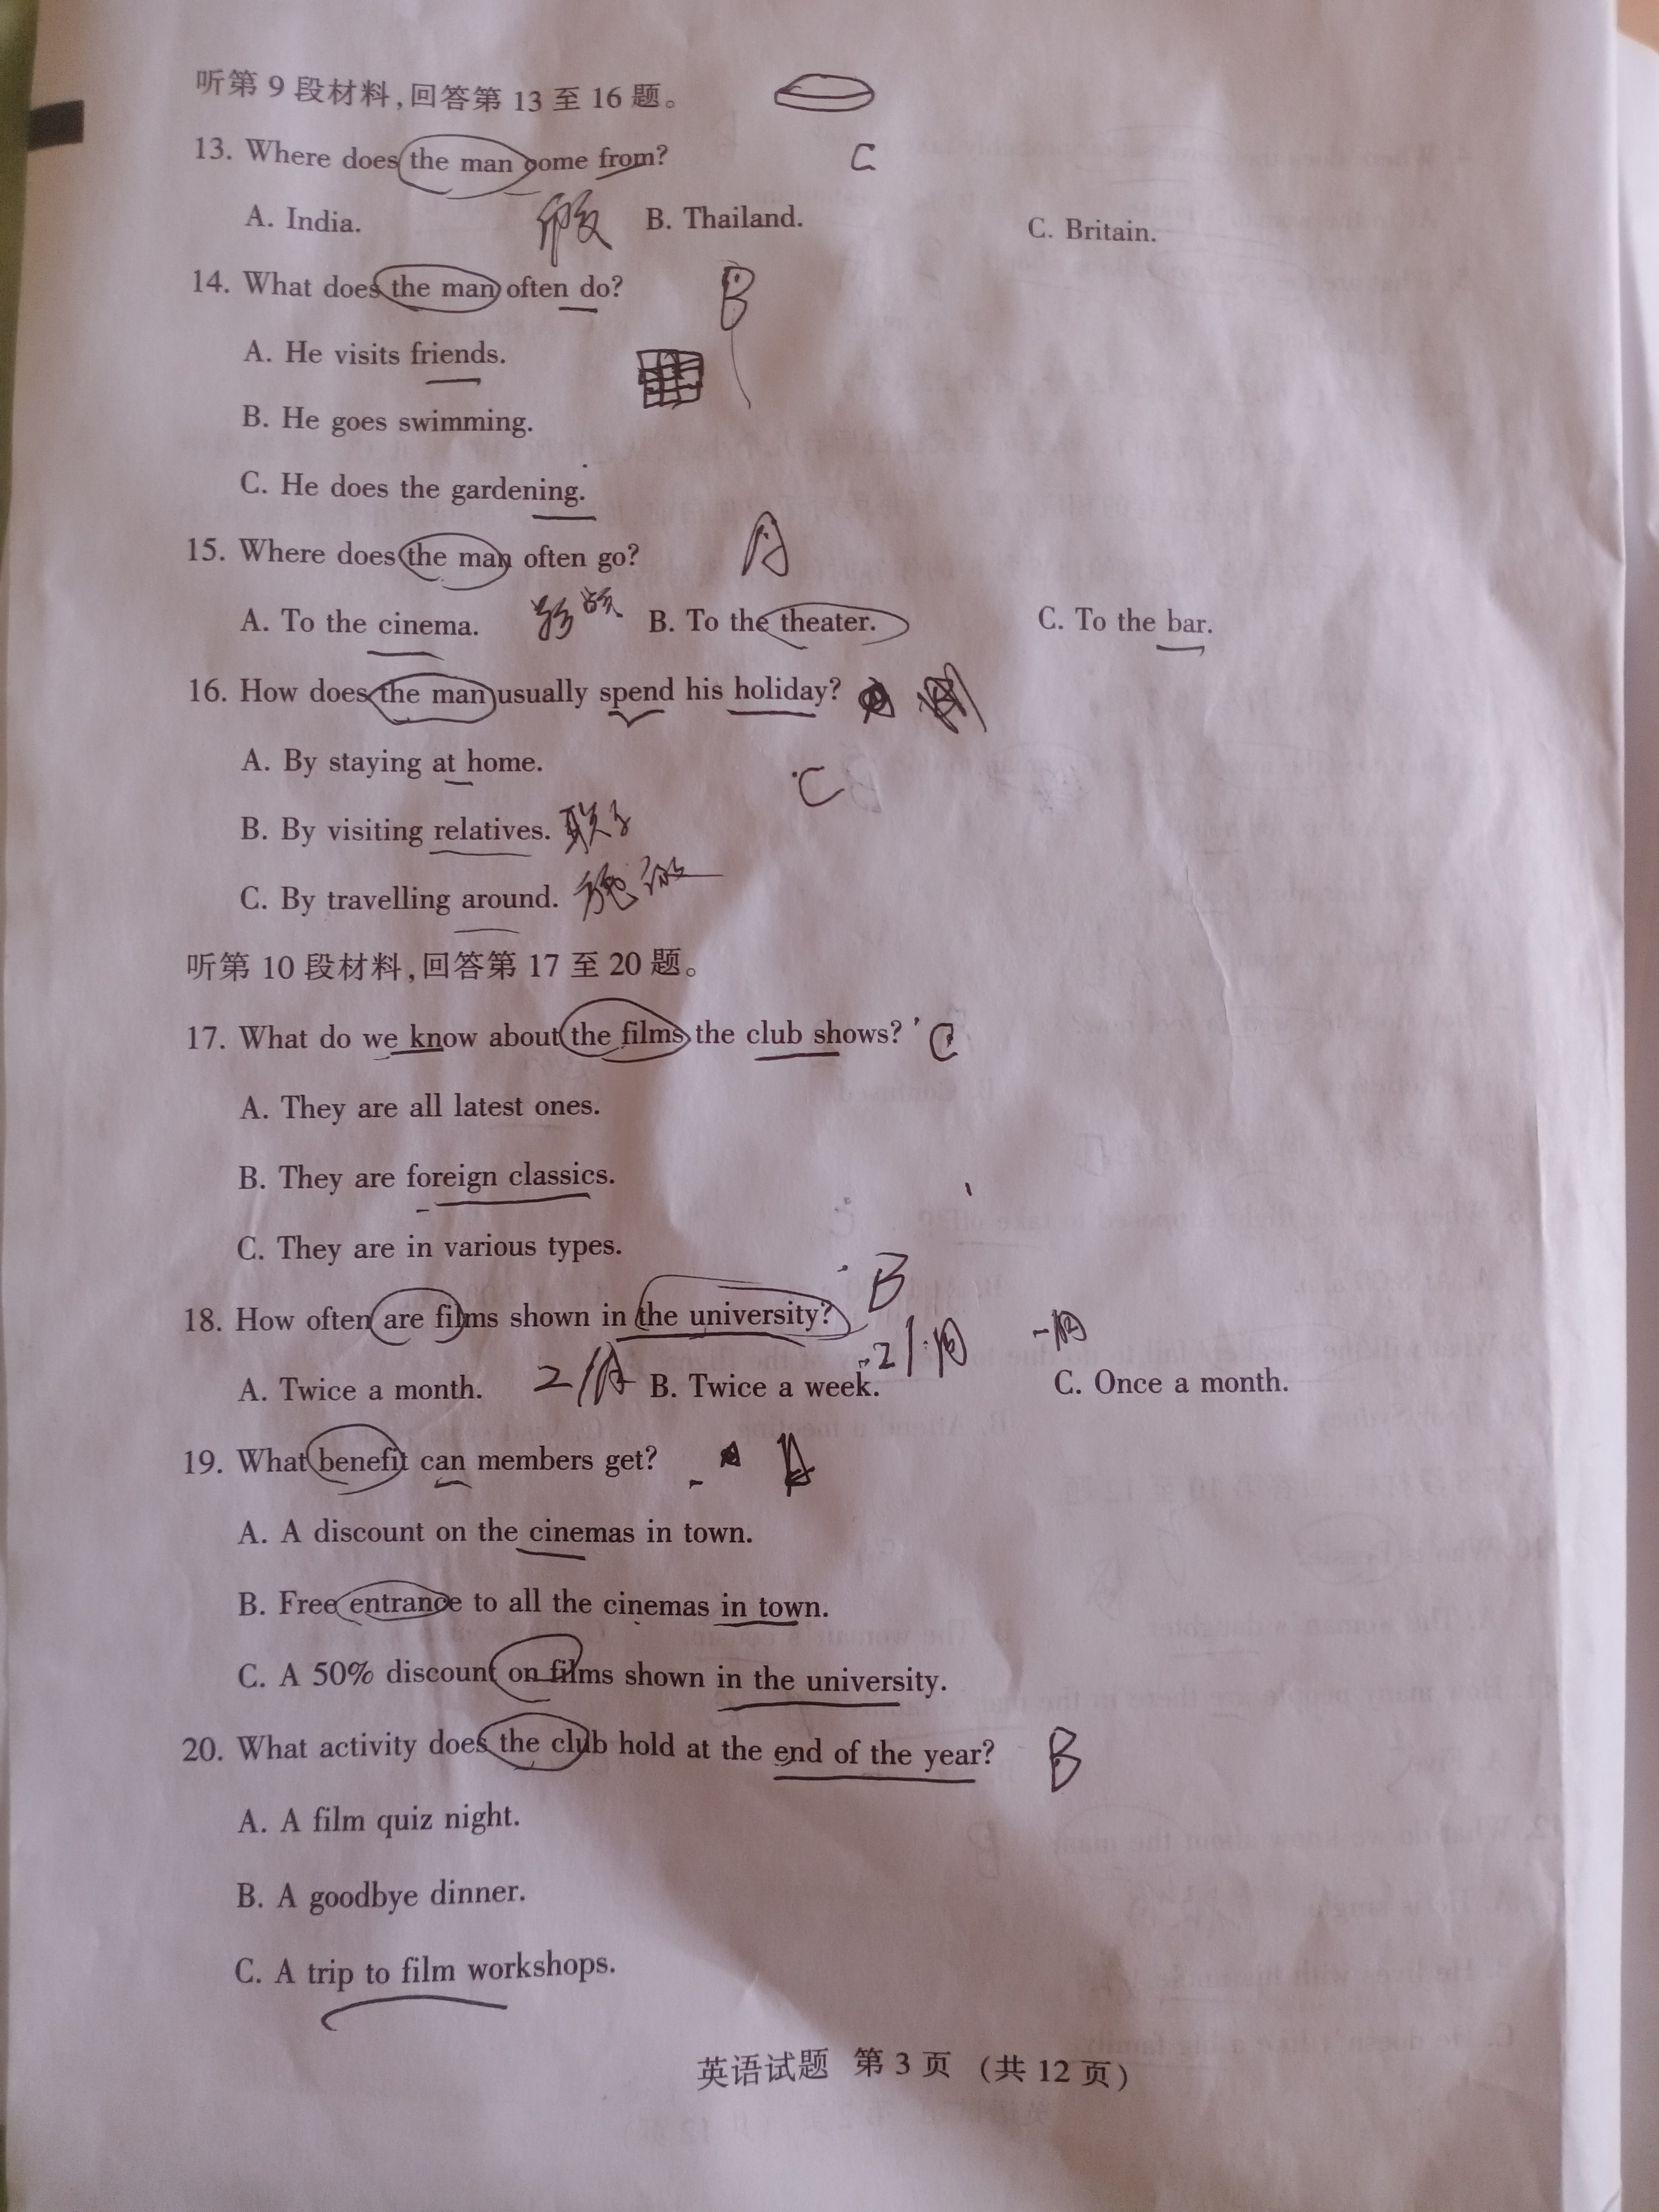 听第 9 段材料,回答第 13 至 16 题。
13. Where does the man come from? C
A. India. B. Thailand. C. Britain.
14. What does the man often do? B
A. He visits friends.
B. He goes swimming.
C. He does the gardening.
15. Where does the man often go? A
A. To the cinema. B. To the theater. C. To the bar.
16. How does the man usually spend his holiday?
A. By staying at home. C
B. By visiting relatives.
C. By travelling around.
听第 10 段材料,回答第 17 至 20 题。
17. What do we know about the films the club shows? C
A. They are all latest ones.
B. They are foreign classics.
C. They are in various types.
18. How often are films shown in the university? B
A. Twice a month. B. Twice a week. C. Once a month.
19. What benefit can members get? A
A. A discount on the cinemas in town.
B. Free entrance to all the cinemas in town.
C. A 50% discount on films shown in the university.
20. What activity does the club hold at the end of the year? B
A. A film quiz night.
B. A goodbye dinner.
C. A trip to film workshops.
英语试题 第 3 页 (共 12 页)